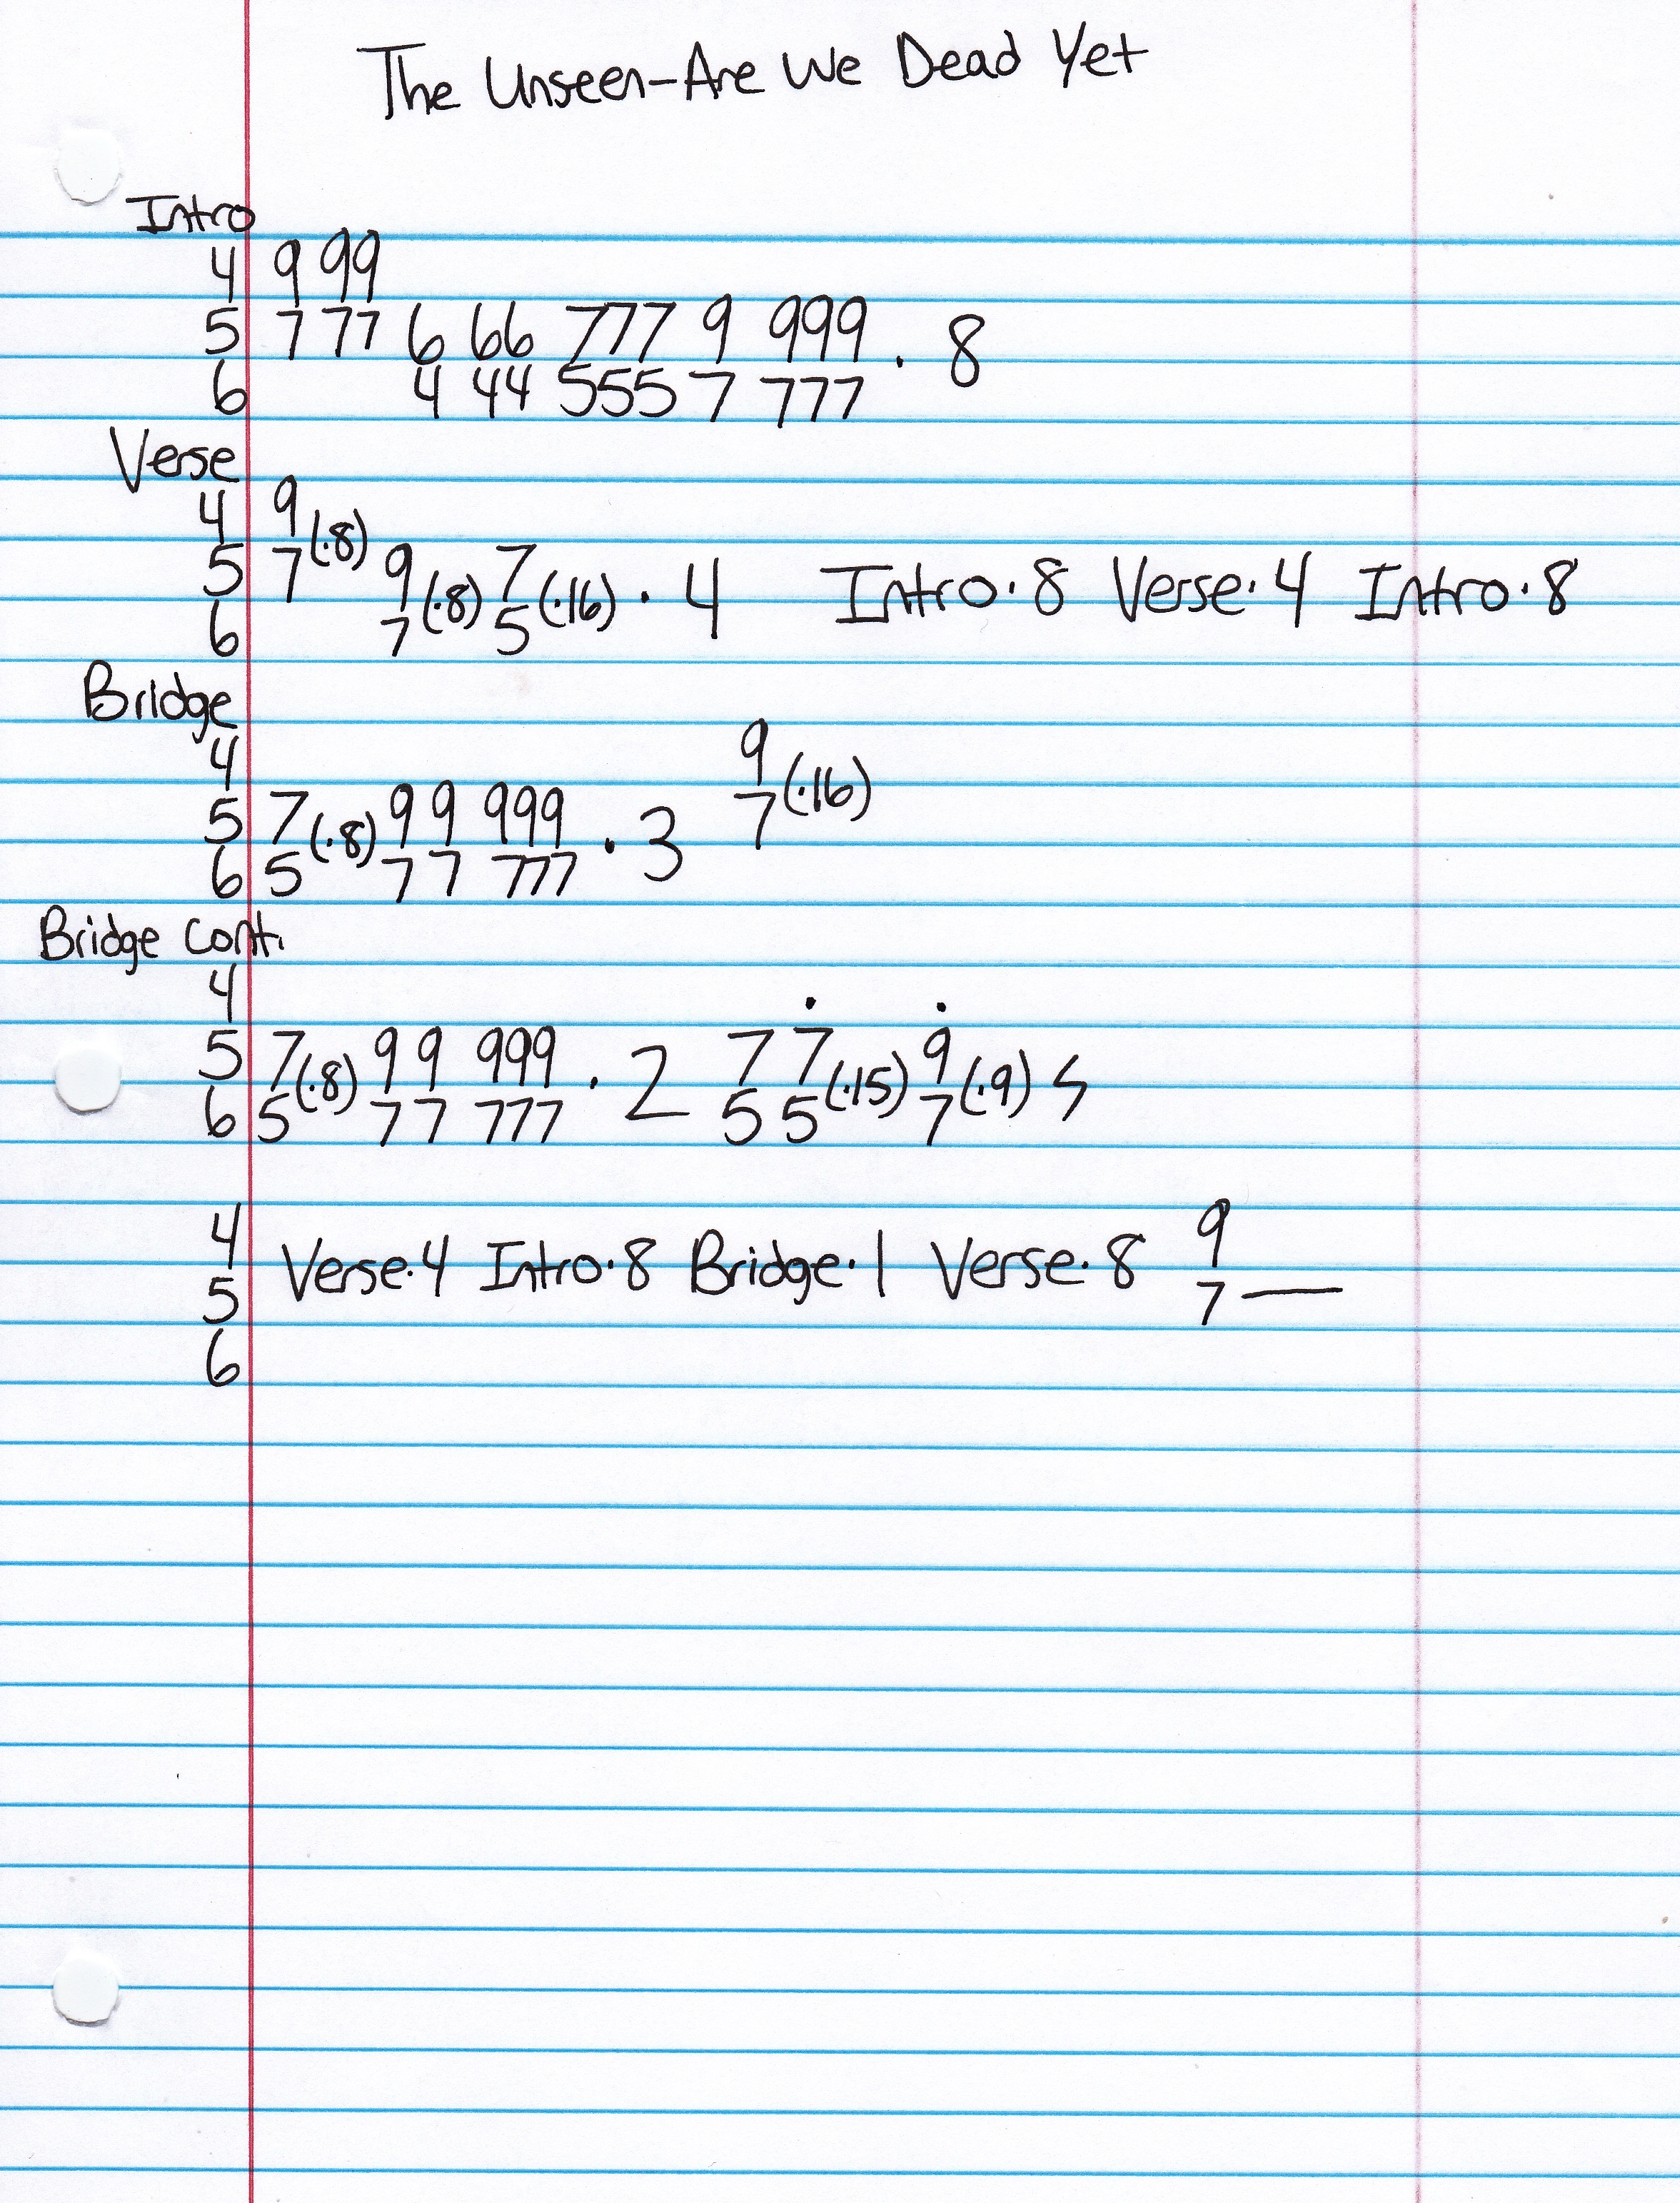 The Unseen-Are We Dead Yet
Intro
4 9 99
5 7 77 6 66 777 9 999 · 8
6 4 44 555 7 777
Verse
4 9
5 7(·8) 9 7
6 7(·8) 5(·16) · 4 Intro·8 Verse·4 Intro·8
Bridge
4 9
5 7 9 9 999 · 3 7(·16)
6 5(·8) 7 7 777
Bridge Cont.
4
5 7 9 9 999 · 2 7 7 9
6 5(·8) 7 7 777 5 5(·15) 7(·9)
4 9
5 Verse·4 Intro·8 Bridge·1 Verse·8 7 —
6